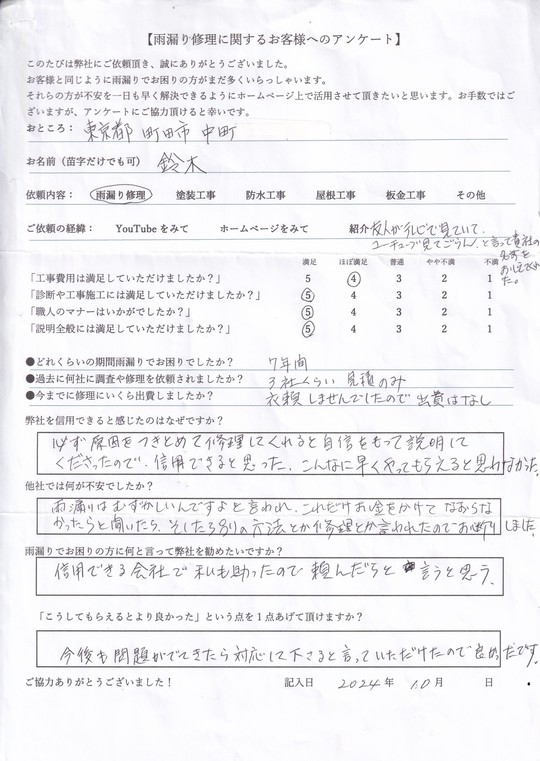 【雨漏り修理に関するお客様へのアンケート】
このたびは弊社にご依頼頂き、誠にありがとうございました。
お客様と同じように雨漏りでお困りの方がまだ多くいらっしゃいます。
それらの方が不安を一日も早く解決できるようにホームページ上で活用させて頂きたいと思います。お手数ではご
ざいますが、アンケートにご協力頂けると幸いです。
おところ： 東京都 町田市 中町
お名前（苗字だけでも可） 鈴木
依頼内容： 雨漏り修理 塗装工事 防水工事 屋根工事 板金工事 その他
ご依頼の経緯： YouTubeをみて ホームページをみて 紹介 友人がテレビで見ていて、
ユーチューブ見てごらん、と言って貴社の
名前を
おしえてくれ
た。
満足 ほぼ満足 普通 やや不満 不満
「工事費用は満足していただけましたか？」 5 4 3 2 1
「診断や工事施工には満足していただけましたか？」 5 4 3 2 1
「職人のマナーはいかがでしたか？」 5 4 3 2 1
「説明全般には満足していただけましたか？」 5 4 3 2 1
●どれくらいの期間雨漏りでお困りでしたか？ 7年間
●過去に何社に調査や修理を依頼されましたか？ 3社くらい 見積のみ
●今までに修理にいくら出費しましたか？ 依頼しませんでしたので出費はなし
弊社を信用できると感じたのはなぜですか？
必ず原因をつきとめて修理してくれると自信をもって説明して
くださったので、信用できると思った。こんなに早くやってもらえると思わなかった。
他社では何が不安でしたか？
雨漏りはむずかしいんですよと言われ、これだけお金をかけてなおらな
かったらと聞いたら、そしたら別の方法とか修理とか言われたのでお断りしました。
雨漏りでお困りの方に何と言って弊社を勧めたいですか？
信用できる会社で私も助ったので頼んだらと言うと思う。
「こうしてもらえるとより良かった」という点を１点あげて頂けますか？
今後も問題がでてきたら対応して下さると言っていただけたので良かったです。
ご協力ありがとうございました！ 記入日 2024年 10月 日